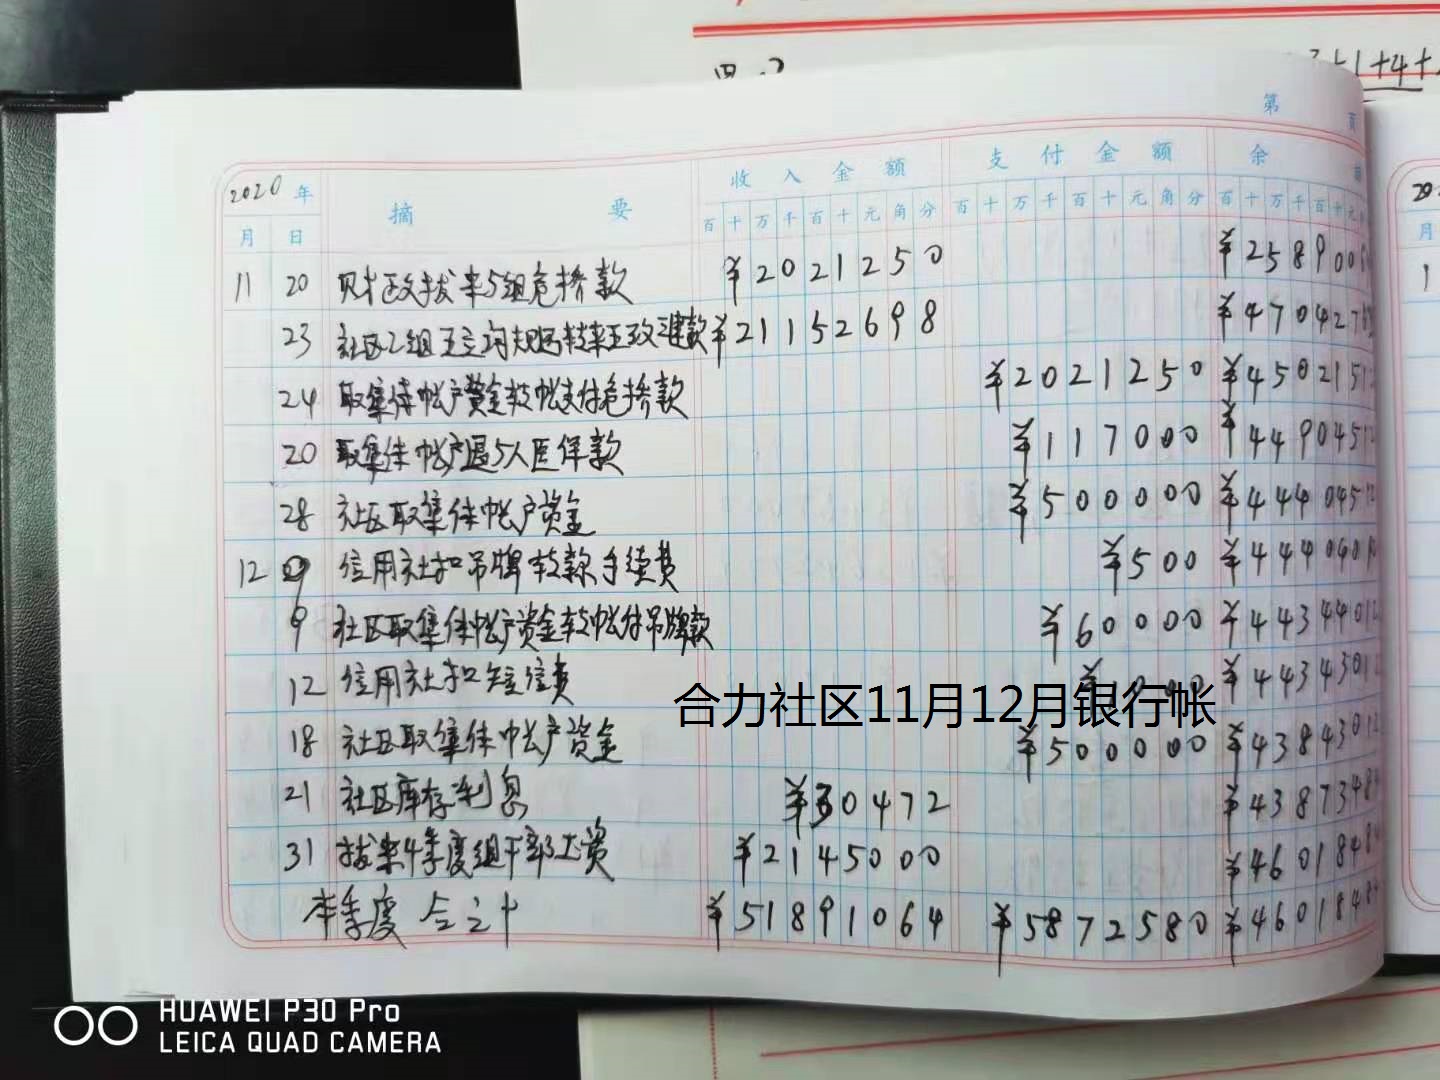 第 页
2020年 摘 要 收入金额 支付金额 余
月 日 百十万千百十元角分 百十万千百十元角分 百十万千百十元
11 20 财政拨来5组危桥款 ¥2021250 ¥258900
23 社区2组 ¥21152698 ¥470427
24 取集体帐户资金转帐支付危桥款 ¥2021250 ¥450215
20 取集体帐户退5人医保款 ¥117000 ¥449045
28 社区取集体帐户资金 ¥500000 ¥444045
12 9 信用社扣吊牌转款手续费 ¥500 ¥444040
9 社区取集体帐户资金转帐付吊牌款 ¥60000 ¥443440
12 信用社扣短信费 ¥443430
合力社区11月12月银行帐
18 社区取集体帐户资金 ¥500000 ¥438430
21 社区库存利息 ¥30472 ¥438734
31 拨来4季度组干部工资 ¥2145000 ¥460184
本季度合计 ¥51891064 ¥5872580 ¥460184
HUAWEI P30 Pro
LEICA QUAD CAMERA